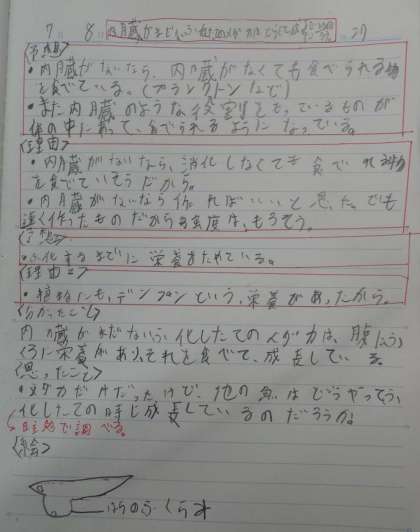 7 8 内臓がまだないふ化したてのメダカはどうして成長
〈予想〉
・内臓がないなら、内臓がなくても食べられる物
を食べている。(プランクトンなど)
・また内臓のような役割をもっているものが
体の中に あって、食べられるようになっている。
〈理由〉
・内臓がないなら、消化しなくても食べれる物
を食べていそうだから。
・内臓がないなら作ればいいと思った。でも
速く作ったものだから 強度は、もろそう。
〈予想〉
・ふ化するまでに栄養をためている。
〈理由〉
・植物にも、デンプンという、栄養があったから。
〈分かったこと〉
内臓がまだないふ化したてのメダカは、腹に
ふくろに栄養があり、それを食べて、成長している。
〈思ったこと〉
・メダカだけだったけど、他の魚はどうやってふ
化したての時に成長しているのだろうか。
自勉で調べる。
〈絵〉
はらのふくらみ